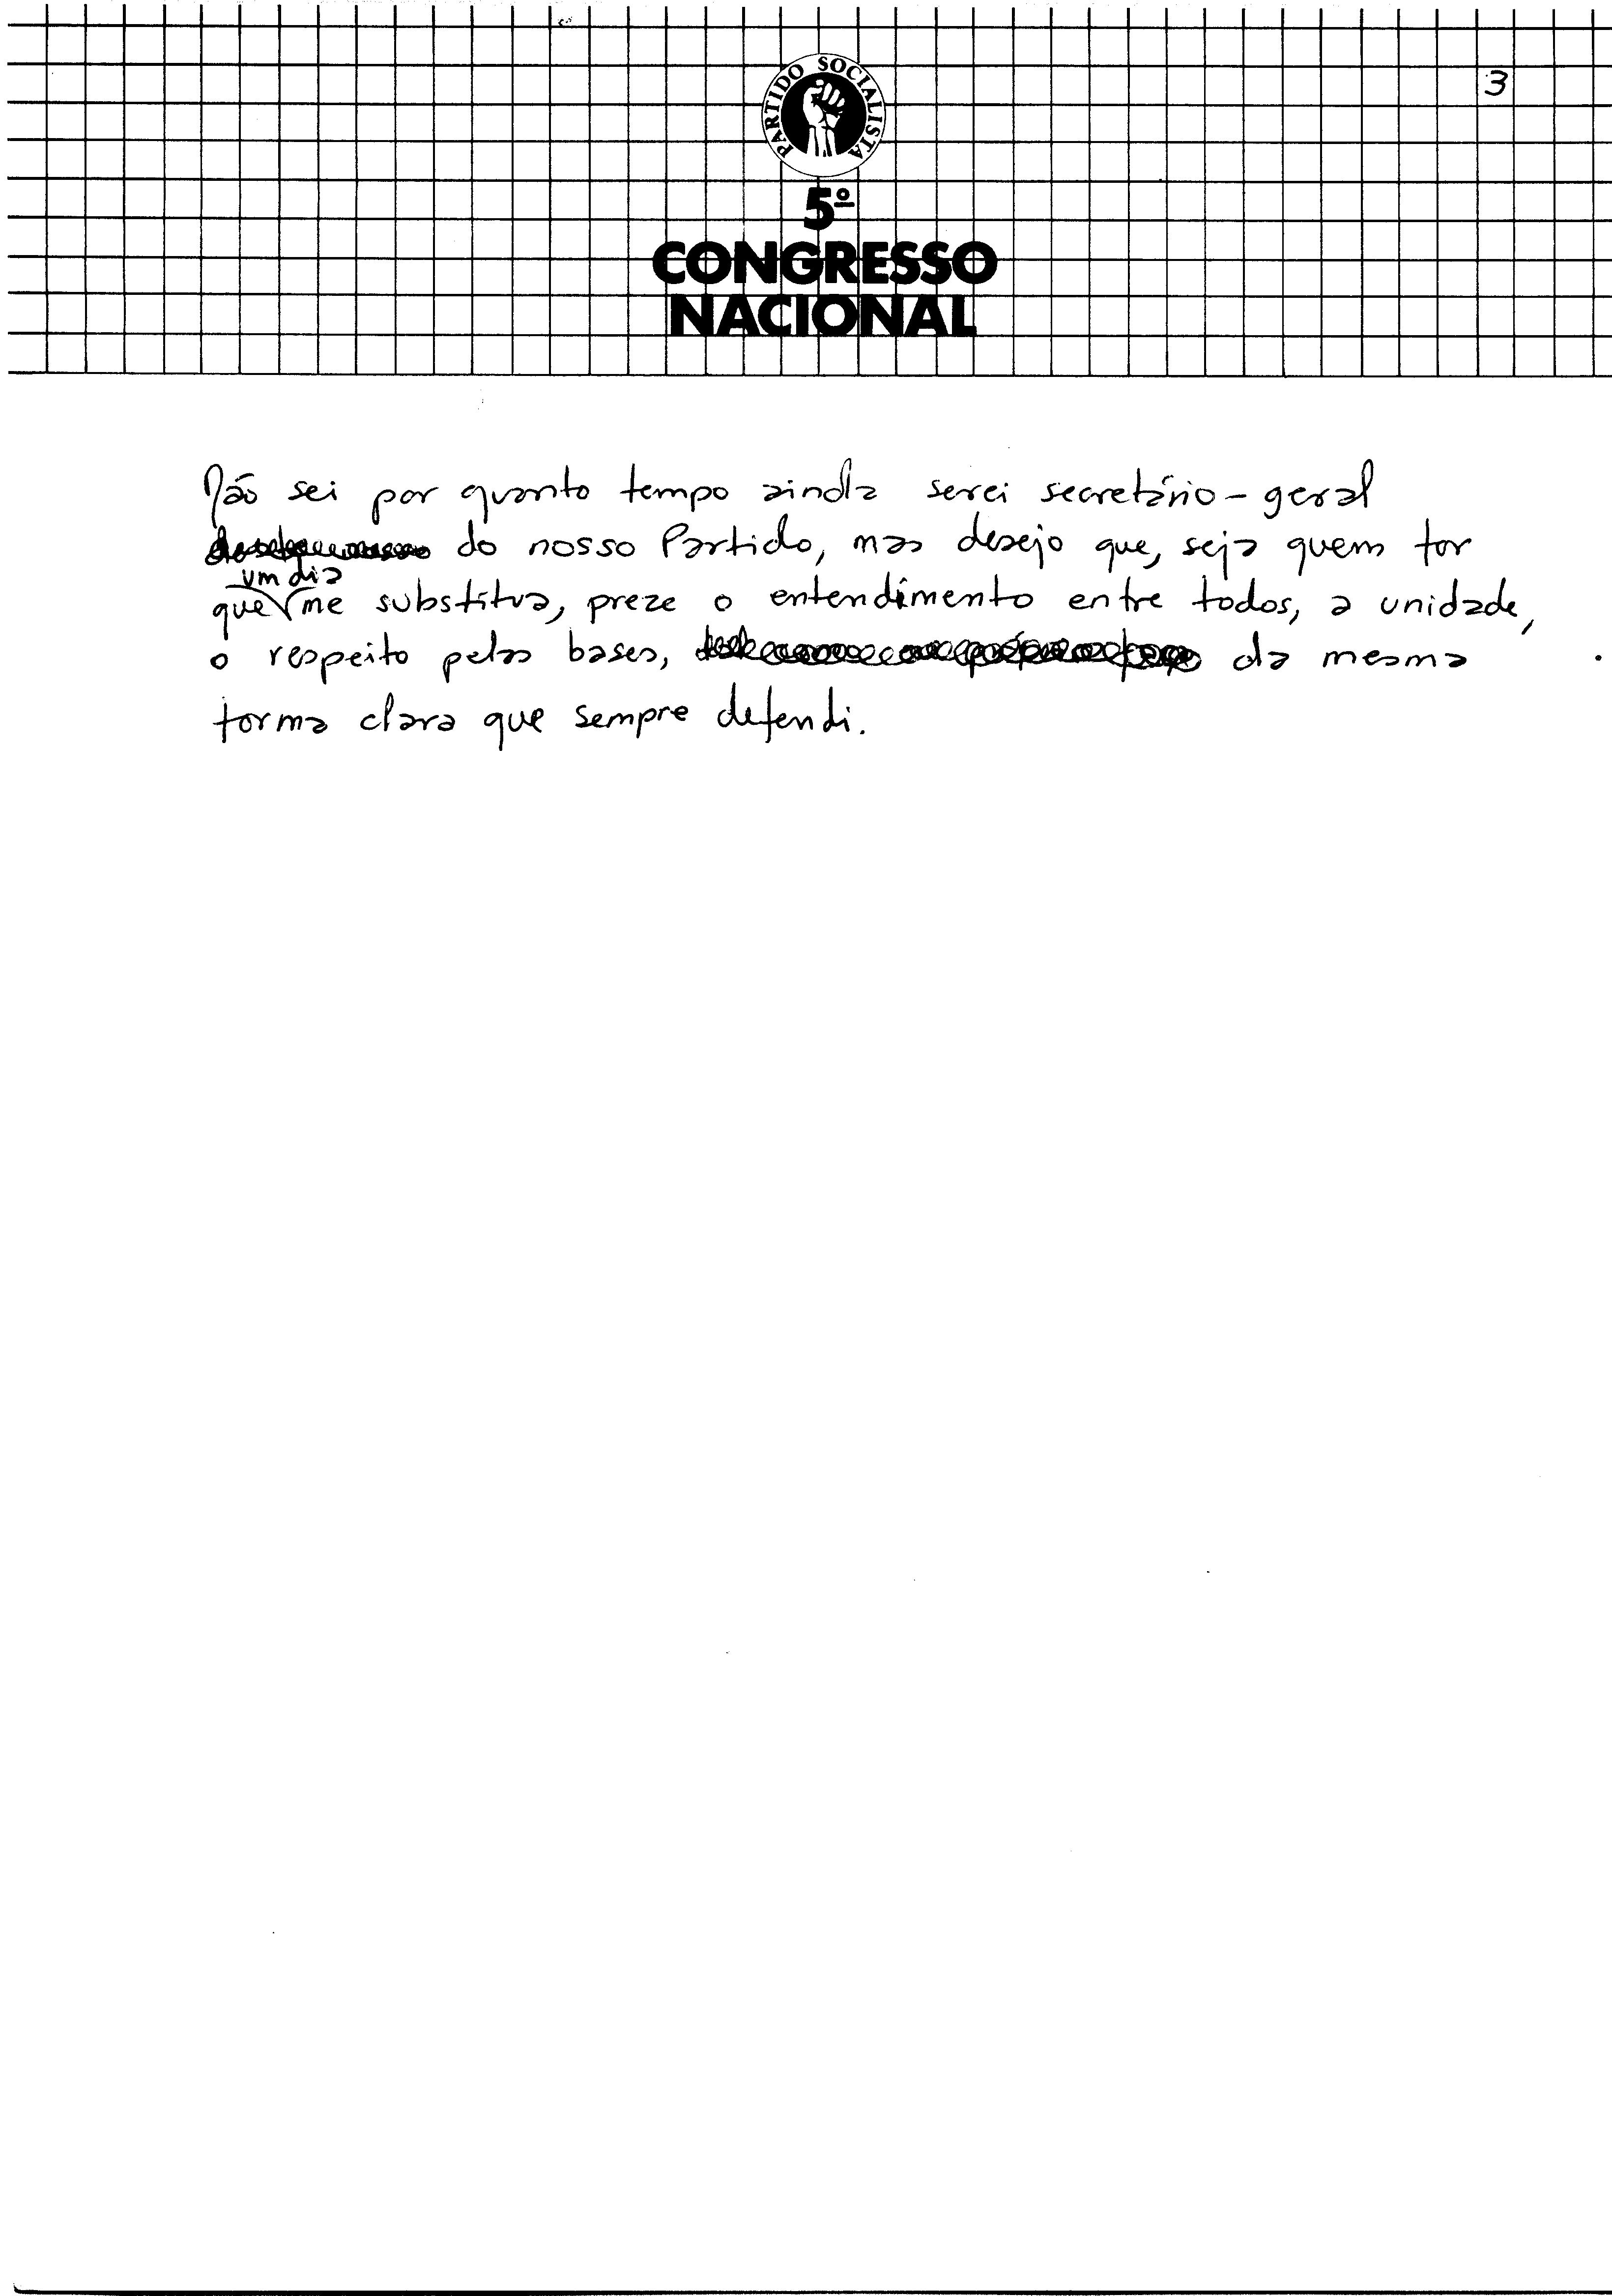 3
PARTIDO SOCIALISTA
5º
CONGRESSO
NACIONAL
Não sei por quanto tempo ainda serei secretário-geral
do nosso Partido, mas desejo que, seja quem for
um dia
que me substitua, preze o entendimento entre todos, a unidade,
o respeito pelas bases, da mesma
forma clara que sempre defendi.